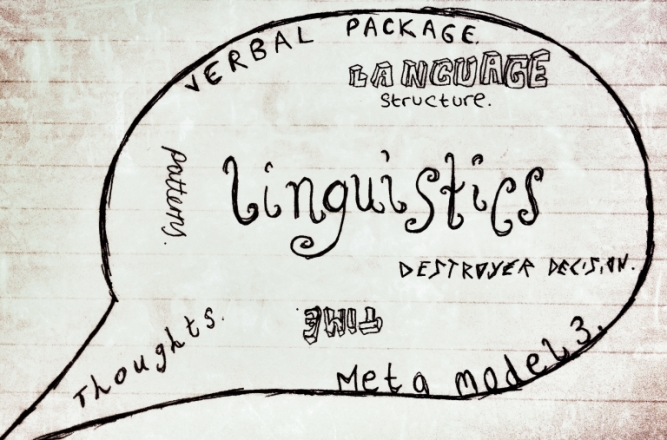 VERBAL PACKAGE.
LANGUAGE
structure.
pattern.
linguistics
DESTROYER DECISION.
TIME
Thoughts.
Meta model 3.